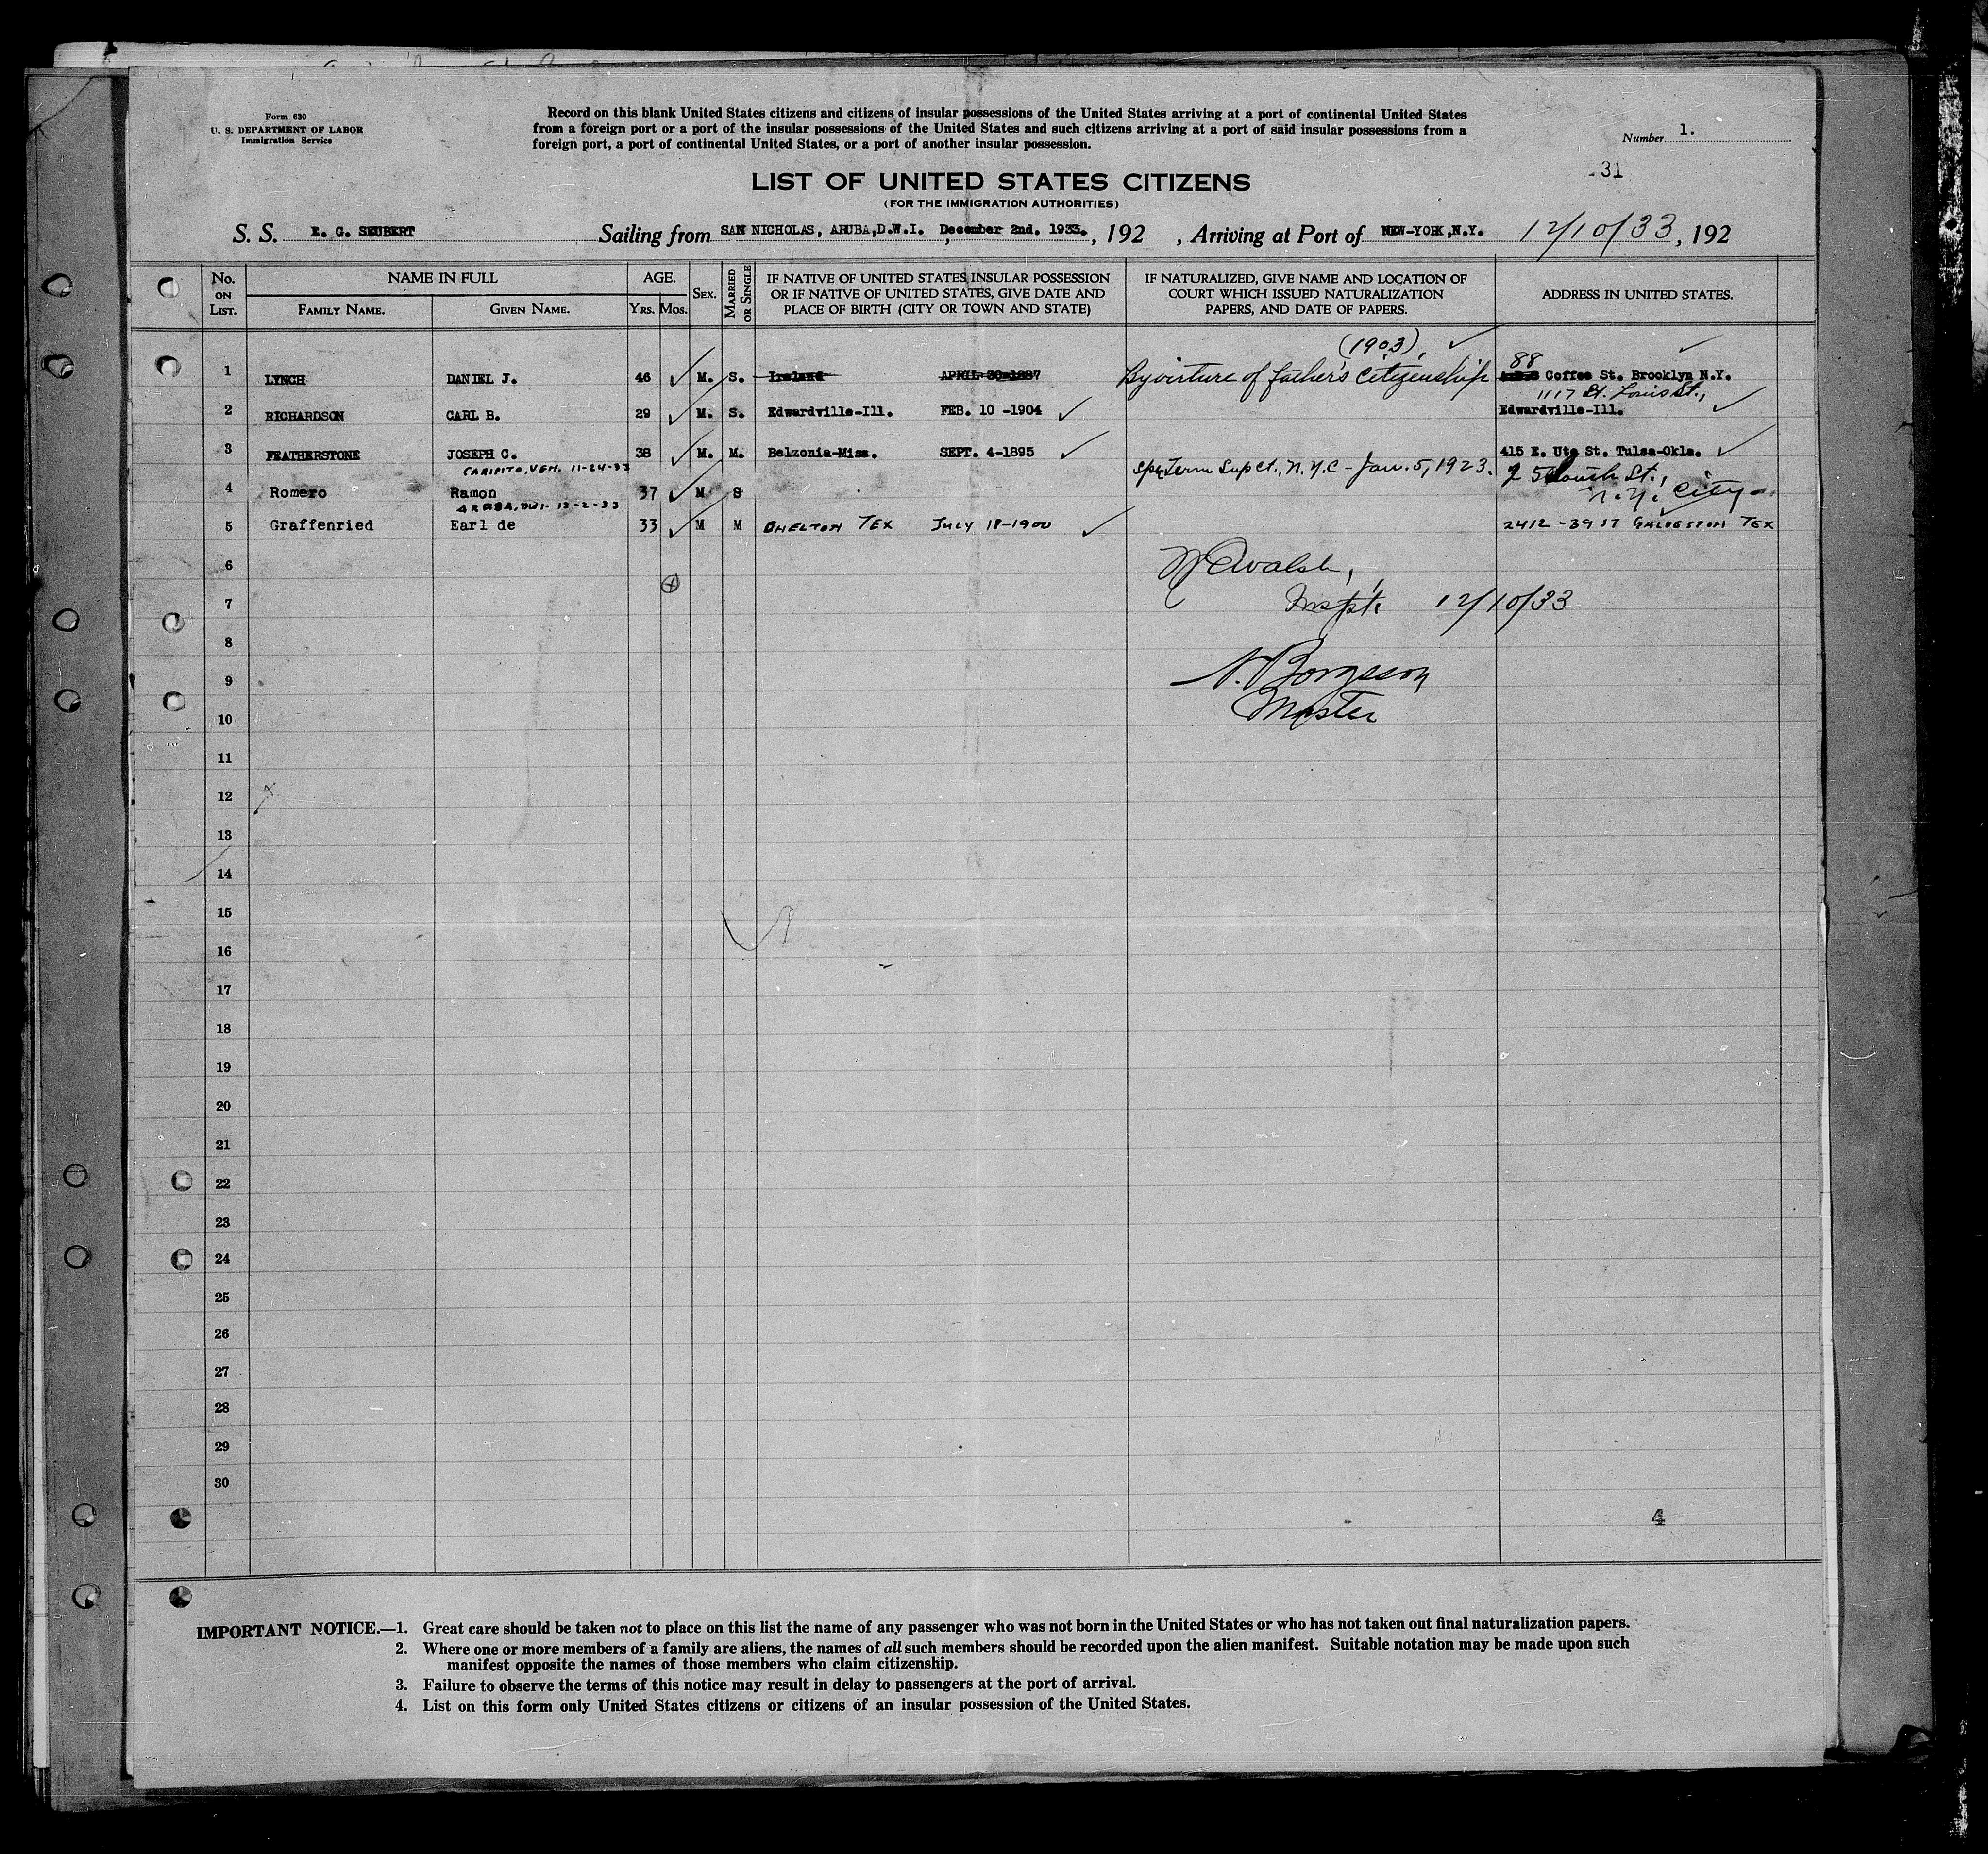 Form 630
U. S. DEPARTMENT OF LABOR
Immigration Service
Record on this blank United States citizens and citizens of insular possessions of the United States arriving at a port of continental United States
from a foreign port or a port of the insular possessions of the United States and such citizens arriving at a port of said insular possessions from a
foreign port, a port of continental United States, or a port of another insular possession.
Number 1.
31
LIST OF UNITED STATES CITIZENS
(FOR THE IMMIGRATION AUTHORITIES)
S. S. E. G. SEUBERT Sailing from SAN NICHOLAS, ARUBA,D.W.I. December 2nd. 1933. , 192 , Arriving at Port of NEW-YORK,N.Y. 12/10/33, 192
No. ON LIST. NAME IN FULL AGE. SEX. MARRIED OR SINGLE IF NATIVE OF UNITED STATES INSULAR POSSESSION OR IF NATIVE OF UNITED STATES, GIVE DATE AND PLACE OF BIRTH (CITY OR TOWN AND STATE) IF NATURALIZED, GIVE NAME AND LOCATION OF COURT WHICH ISSUED NATURALIZATION PAPERS, AND DATE OF PAPERS. ADDRESS IN UNITED STATES.
FAMILY NAME. GIVEN NAME. YRS. MOS.
(1903),
88
1 LYNCH DANIEL J. 46 M. S. Ireland APRIL 30-1887 By virture of father's Citizenship Coffee St. Brooklyn N.Y.
1117 St. Louis St.,
2 RICHARDSON CARL B. 29 M. S. Edwardville-Ill. FEB. 10 -1904 Edwardville-Ill.
3 FEATHERSTONE JOSEPH C. 38 M. M. Belzonia-Miss. SEPT. 4-1895 415 E. Ute St. Tulsa-Okla.
CARIPITO, VEN. 11-24-33 Spe Term Sup Ct., N.Y.C - Jan. 5, 1923. 25 South St.,
4 Romero Ramon 37 M S N.Y. City
ARUBA, DWI- 12-2-33
5 Graffenried Earl de 33 M M CHELTON TEX JULY 18-1900 2412 - 39 ST GALVESTON TEX
6 Walsh,
7 Inspt. 12/10/33
8
9 N. Borgsson
10 Master
11
12
13
14
15
16
17
18
19
20
21
22
23
24
25
26
27
28
29
30
4
IMPORTANT NOTICE.—1. Great care should be taken not to place on this list the name of any passenger who was not born in the United States or who has not taken out final naturalization papers.
2. Where one or more members of a family are aliens, the names of all such members should be recorded upon the alien manifest. Suitable notation may be made upon such
manifest opposite the names of those members who claim citizenship.
3. Failure to observe the terms of this notice may result in delay to passengers at the port of arrival.
4. List on this form only United States citizens or citizens of an insular possession of the United States.